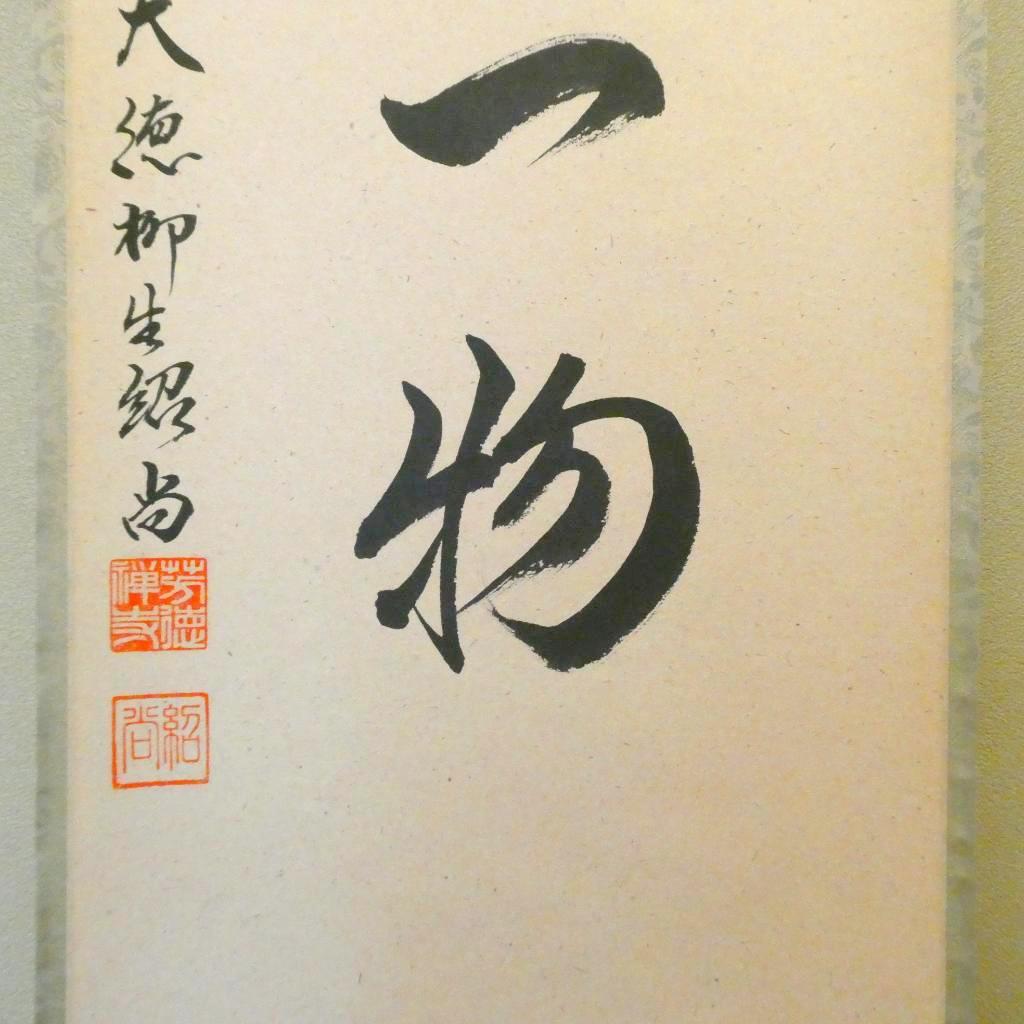 一物
大徳柳生紹尚
芳徳禅寺
紹尚